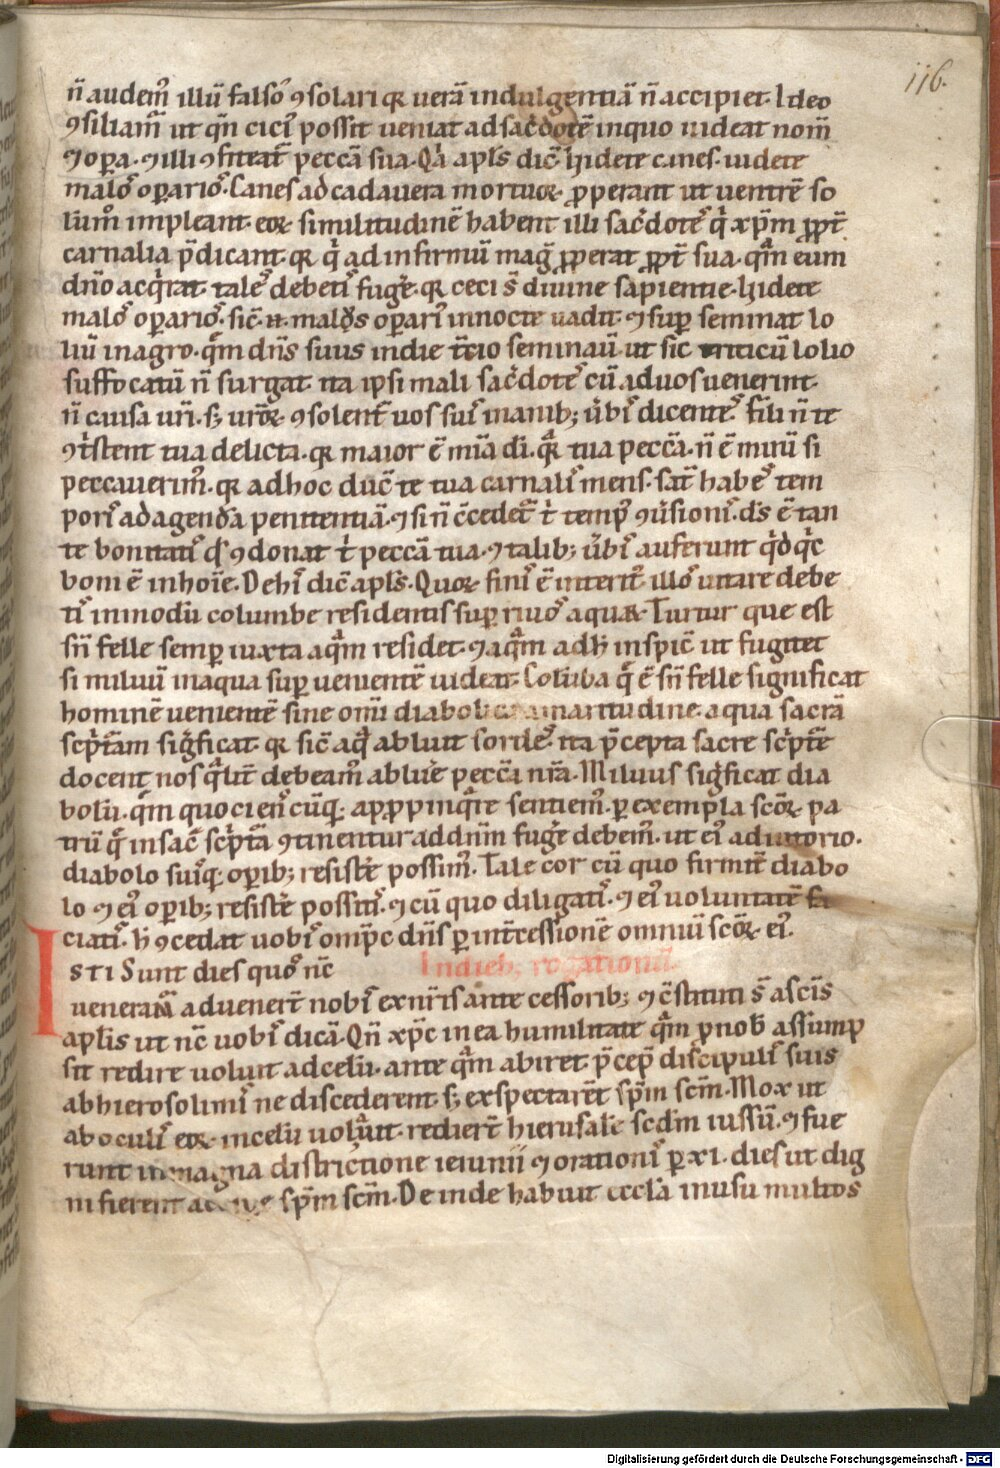 116.
n̄ audem᷒ illū falso᷒ ꝯsolari qꝛ uerā indulgentiā n̄ accipiet. Ideo
ꝯsiliam̄ ut qn̄ citi᷒ possit ueniat ad sac̄dotē in quo uideat nom̄
⁊ oꝑa. ⁊ illi ꝯfiteat᷒ peccā sua. Qͥa apl̄s dic̄. Uidete canes. uidete
malo᷒ oꝑario᷒. Canes ad cadauera mortuoꝝ ꝓperant ut uentrē so
lūm impleant. eoꝝ similitudinē habent illi sac̄dote᷒ qͥ xp̄m ꝓpt̄
carnalia p̄dicant. qꝛ qͥ ad infirmū maḡ ꝓperat ꝓpt̄ sua. qͣm eum
dn̄o acqͥrat. tale᷒ debeti᷒ fuge᷒. qꝛ ceci s̄ diuine sapientie. Uidete
malo᷒ oꝑario᷒. sic̄ .n. malꝰ oꝑari᷒ in nocte uadit. ⁊ suꝑ seminat lo
liū in agro. qͣm dn̄s suus in die t̄cio seminauit ut sic triticū lolio
suffocatū n̄ surgat. ita ipsi mali sac̄dote᷒ cū ad uos uenerint.
n̄ causa ur̄i. sꝫ ur̄oꝝ ꝯsolent᷒ uos sui᷒ inanibꝫ u᷒bi᷒ dicente᷒. fili n̄ te
ꝯtͥstent tua delicta. qꝛ maior ē mīa dī. qͣ tua peccā. n̄ ē mirū si
peccauerim᷒. qꝛ adhoc duc̄ te tua carnali᷒ mens. sat᷒ habe᷒ tem
pori᷒ ad agendā penitentiā. ⁊ si n̄ c̄cedet᷒ tͥ temp᷒ ꝯu᷒sioni᷒. ds̄ ē tan
te bonitati᷒ qd̄ ꝯdonat tͥ peccā tua. ⁊ talibꝫ u᷒bi᷒ auferunt qͥd qͥc
boni ē in hoīe. De hi᷒ dic̄ apl̄s. Quoꝝ fini᷒ ē interit᷒. illo᷒ uitare debe
ti᷒ in modū columbe residentis suꝑ riuo᷒ aquaꝝ. Turtur que est
sn̄ felle semꝑ iuxta aqͣm residet. ⁊ aqͣm ad h̄ inspic̄ ut fugitet
si miluū in aqua suꝑ uenientē uideat. Colūba qͣ ē sn̄ felle significat
hominē uenientē sine om̄i diabolica amaritudine. aqua sacrā
scͥptam siḡficat. qꝛ sic̄ aqͣ abluit sorde᷒. ita p̄cepta sacre scͥpte
docent nos qͣlit᷒ debeam᷒ ablue᷒ peccā nr̄a. Miluus siḡficat dia
bolū. qͣm quociens᷒ cūqꝫ apꝓpinqͣre sentiem᷒. ꝑ exempla scōꝝ pa
trū qͣ in sac̄ scͥpta ꝯtinentur ad dn̄m fuge᷒ debem᷒. ut ei᷒ adiutorio.
diabolo sui᷒qꝫ oꝑibꝫ resiste᷒ possim᷒. Tale cor cū quo firmit᷒ diabo
lo ⁊ ei᷒ oꝑibꝫ resiste᷒ possiti᷒. ⁊ cū quo diligati᷒. ⁊ ei᷒ uoluntatē fa
ciati᷒. h̄ ꝯcedat uobi᷒ omp̄c dn̄s ꝑ int᷒cessionē omniū scōꝝ ei᷒.
ISTI Sunt dies quo᷒ nc̄ In dieb; rogationū.
ueneram᷒ aduenert̄ nobi᷒ ex nr̄is antecessoribꝫ ⁊ c̄stituti s̄ a sc̄is
aplīs ut nc̄ uobi᷒ dicā. Qn̄ xp̄c in ea humilitate qͣm ꝓ nob̄ assump
sit redire uoluit ad celū. ante qͣm abiret. p̄cep̄ discipuli᷒ suis
ab hierosolimi᷒ ne discederent. sꝫ exspectarēt sp̄m sc̄m. Mox ut
ab oculi᷒ eoꝝ in celū uolauit. redierr̄ hierusalē sc̄dm iussū. ⁊ fue
runt in magna districtione ieiunii ⁊ orationi᷒ ꝑ xi. dies ut dig
ni fierent sp̄m sc̄m. De inde habuit ecclā in usu multos
Digitalisierung gefördert durch die Deutsche Forschungsgemeinschaft - DFG